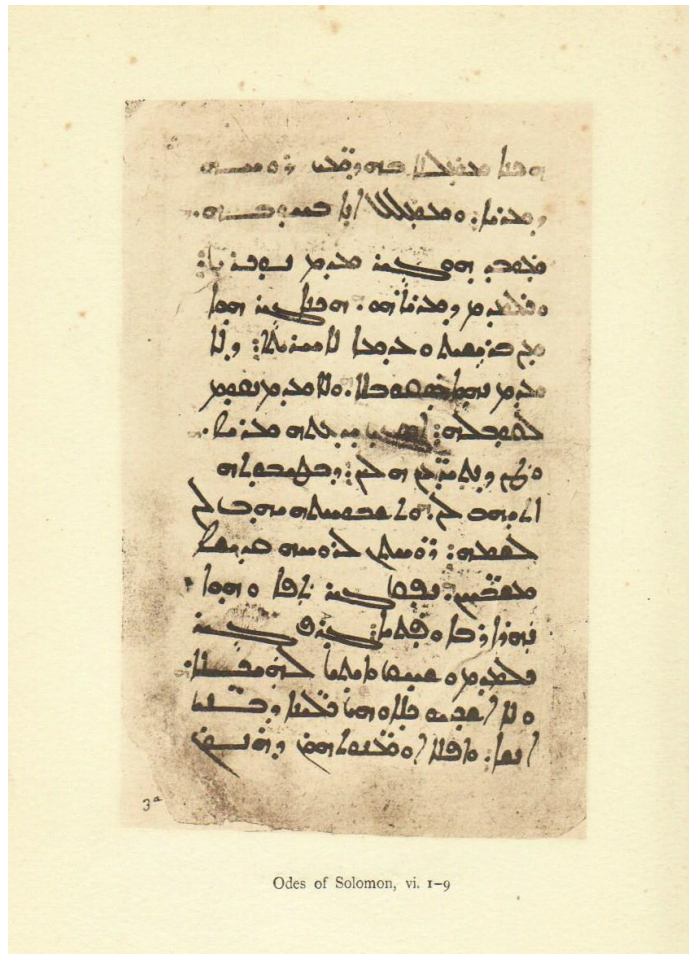 ܗܟܢܐ ܡܡܠܠܐ ܒܗܕܡܝ ܪܘܚܗ
ܕܡܪܝܐ: ܘܡܡܠܠ ܐܢܐ ܒܚܘܒܗ.
ܡܘܒܕ ܗܘ ܓܝܪ ܡܕܡ ܢܘܟܪܝܐ:
ܘܟܠܡܕܡ ܕܡܪܝܐ ܗܘ. ܗܟܢܐ ܓܝܪ ܗܘܐ
ܡܢ ܒܪܫܝܬ ܘܥܕܡܐ ܠܐܚܪܝܬܐ: ܕܠܐ
ܡܕܡ ܢܗܘܐ ܣܩܘܒܠܐ. ܘܠܐ ܡܕܡ ܢܩܘܡ
ܠܘܩܒܠܗ: ܐܣܓܝ ܝܕܥܬܗ ܡܪܝܐ.
ܘܛܢ ܕܢܬܝܕܥܢ ܗܠܝܢ: ܕܒܛܝܒܘܬܗ
ܐܬܝܗܒ ܠܢ. ܘܬܫܒܘܚܬܗ ܝܗܒ ܠܢ
ܠܫܡܗ: ܪܘܚܬܢ ܠܪܘܚܗ ܩܕܝܫܐ
ܡܫܒܚܢ. ܢܦܩܬ ܓܝܪ ܬܦܐ ܘܗܘܬ
ܢܗܪܐ ܪܒܐ ܘܦܬܝܐ: ܓܪܦܬ ܓܝܪ
ܟܠܡܕܡ ܘܫܚܩܬ ܘܐܝܬܝܬ ܠܗܝܟܠܐ:
ܘܠܐ ܐܫܟܚܘ ܟܠܘܗܝ ܟܠܝܢܐ ܕܒܢܝ
ܐܢܫܐ: ܘܐܦܠܐ ܐܘܡܢܘܬܗܘܢ ܕܗܢܘܢ
3a
Odes of Solomon, vi. 1–9